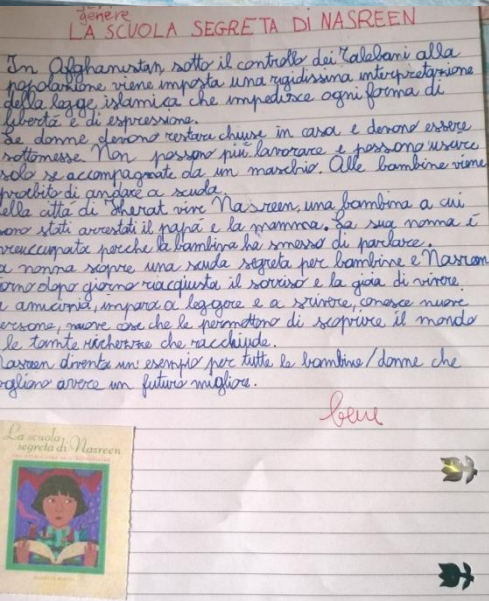 genere
LA SCUOLA SEGRETA DI NASREEN
In Afghanistan, sotto il controllo dei Talebani alla
popolazione viene imposta una rigidissima interpretazione
della legge islamica che impedisce ogni forma di
libertà e di espressione.
Le donne devono restare chiuse in casa e devono essere
sottomesse. Non possono più lavorare e possono uscire
solo se accompagnate da un maschio. Alle bambine viene
proibito di andare a scuola.
ella città di Herat vive Nasreen, una bambina a cui
sono stati arrestati il papà e la mamma. La sua nonna è
preoccupata perché la bambina ha smesso di parlare.
a nonna scopre una scuola segreta per bambine e Nasreen
orno dopo giorno riacquista il sorriso e la gioia di vivere.
a amicizia, impara a leggere e a scrivere, conosce nuove
ersone, nuove cose che le permettono di scoprire il mondo
le tante ricchezze che racchiude.
Nasreen diventa un esempio per tutte le bambine/donne che
ogliono avere un futuro migliore.
bene
La scuola
segreta di Nasreen